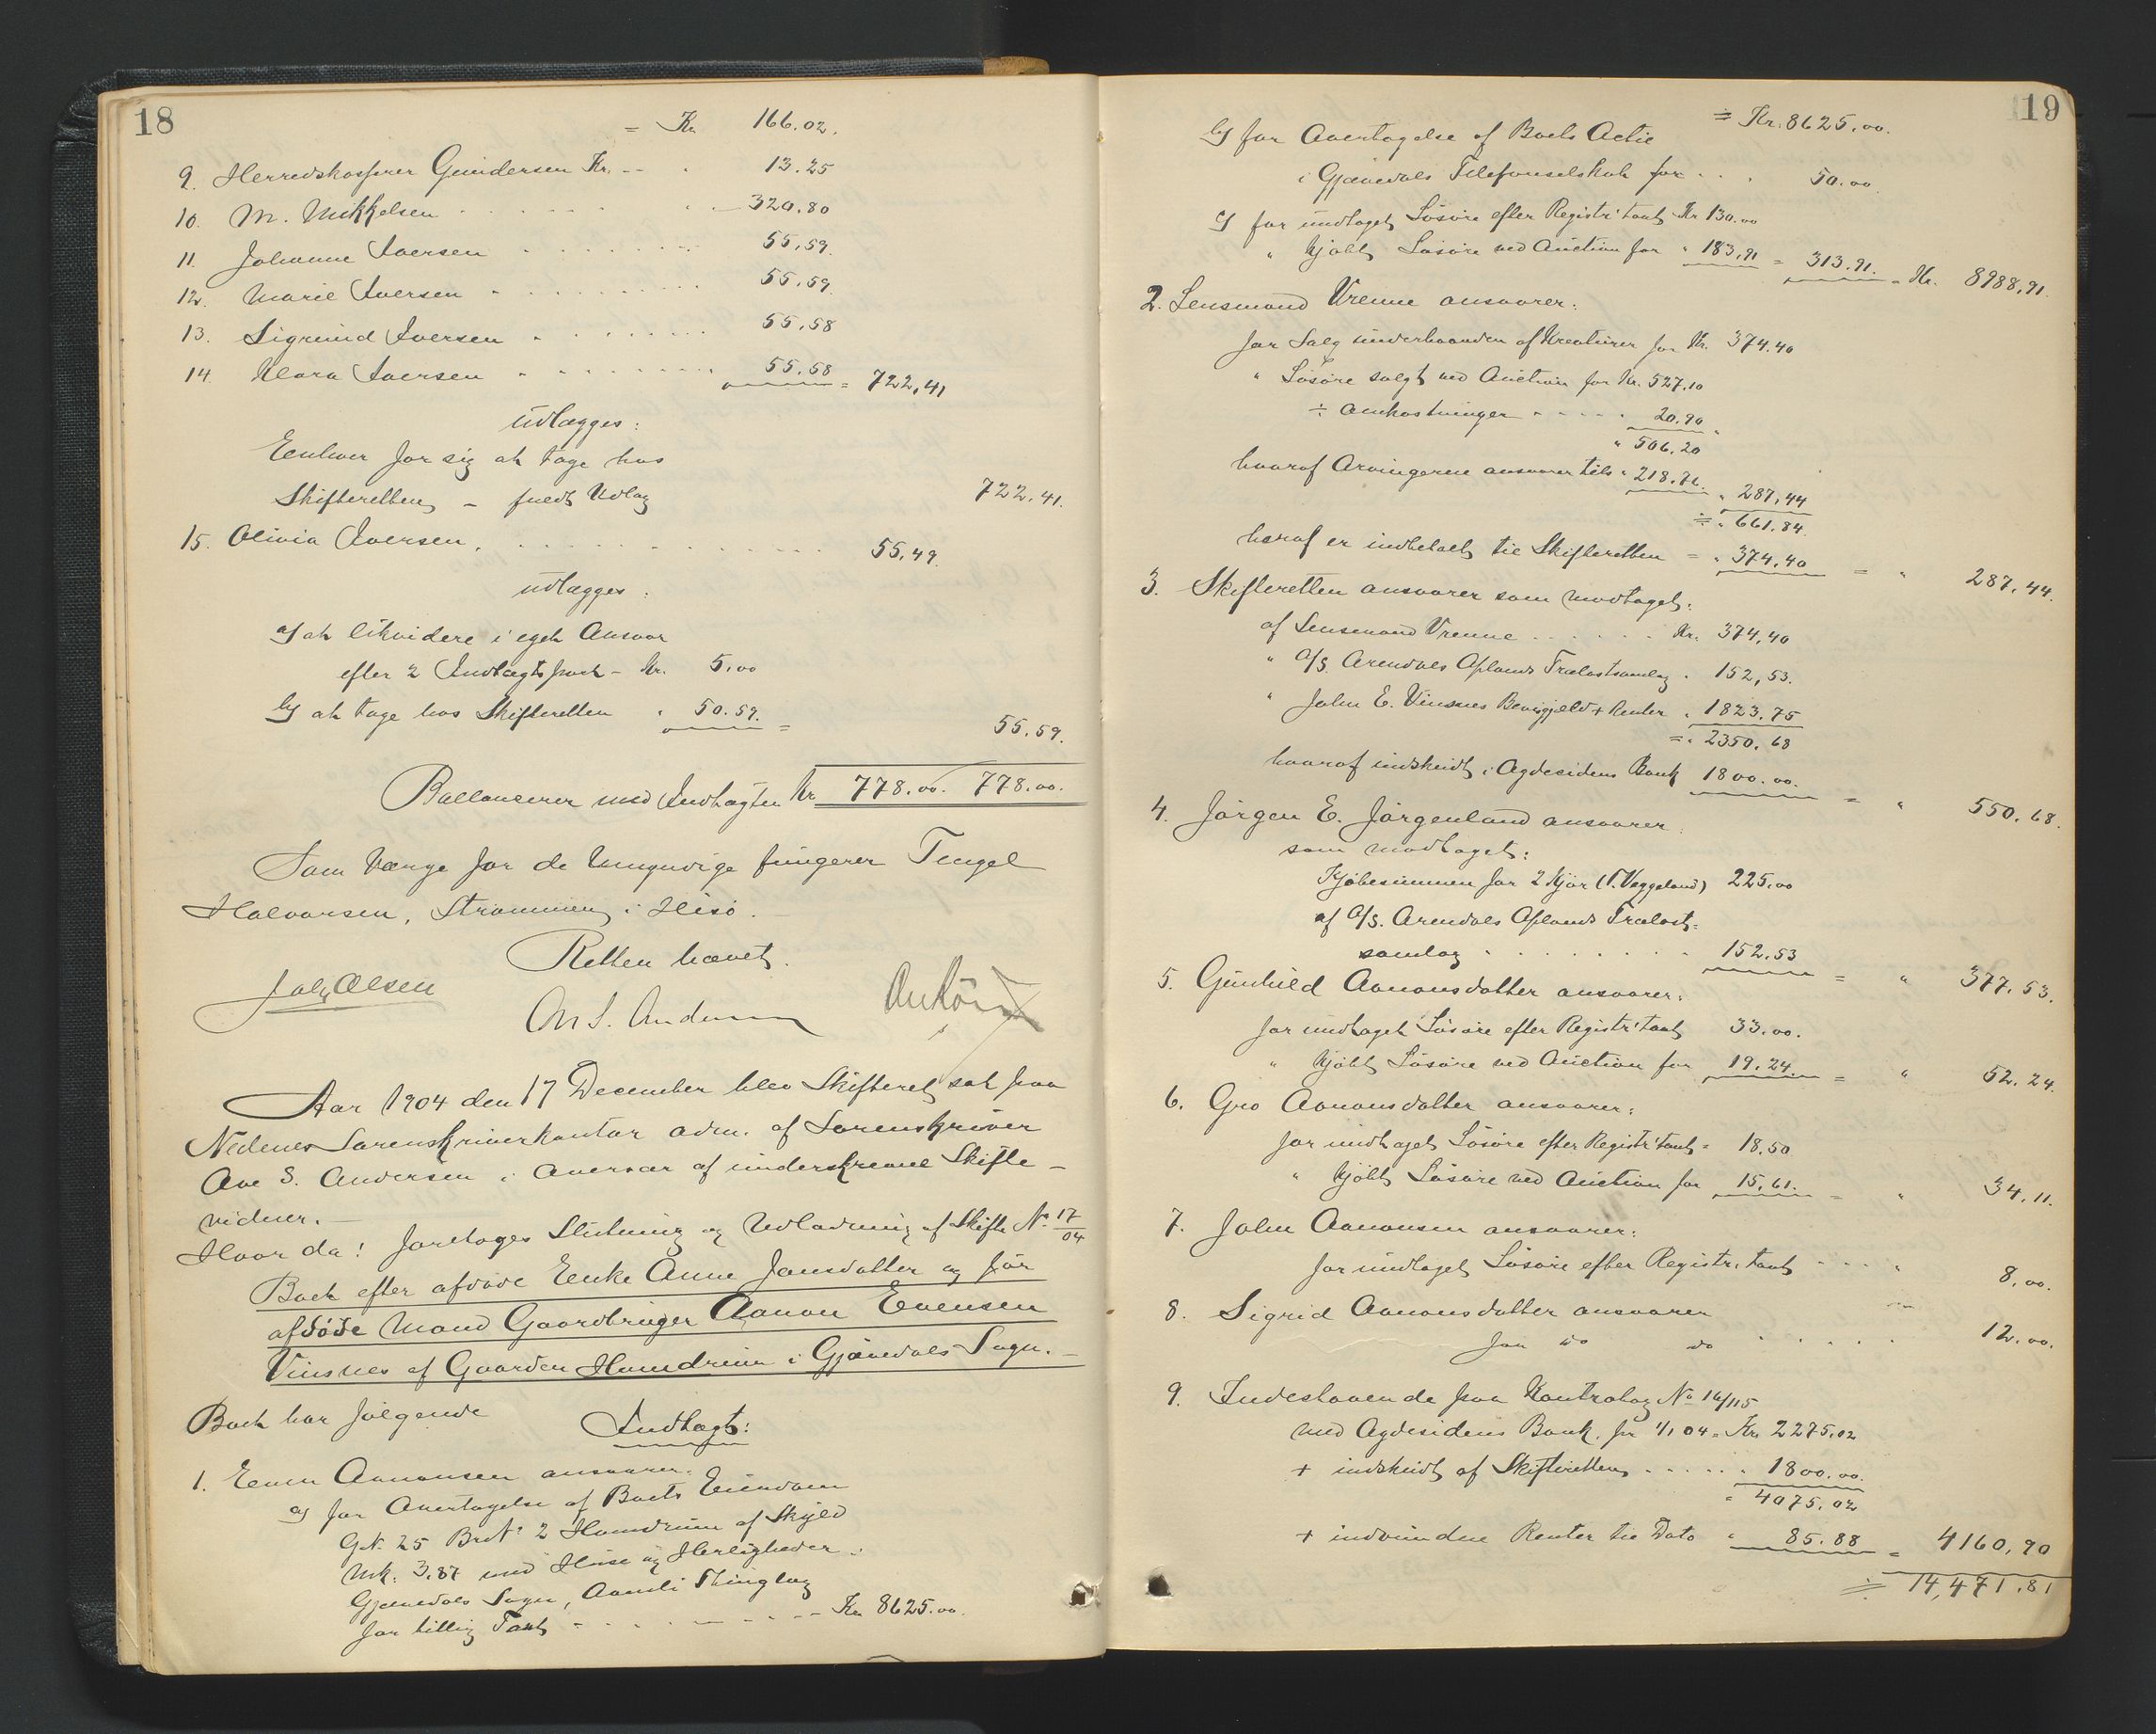 18
= Kr. 166.02.
9. Herredskasserer Gundersen Kr. 13.25
10. M. Mikkelsen 320.80
11. Johanne Iversen 55,59.
12. Marie Iversen 55,59
13. Sigmund Iversen 55,58
14. Klara Iversen 55,58 = 722,41
udlægges:
Eenhver for sig at tage hos
Skifteretten - fuldt Udlæg 722,41.
15. Olivia Iversen. 55,49.
udlægges:
a) at likvidere i eget Ansvar
efter 2 Indtægtspost - Kr. 5,00
b) at tage hos Skifteretten " 50.59. = 55,59.
Ballancerer med Indtægten Kr. 778.00. 778.00.
Som Værge for de Umyndige fungerer Tengel
Halvorsen, Strømmen i Hisø.
Retten hævet.
Ons. Andersen
Aar 1904 den 17 December blev Skifteret sat paa
Nedenes Sorenskriverkontor adm. af Sorenskriver
Ove S. Andersen i Overvær af underskrevne Skifte-
vidner. -
Hvor da! foretoges Slutning og Udlodning af Skifte No. 17/04
Boet efter afdøde Enke Anne Jensdatter og før
afdøde Mand Gaardbruger Aanon Evensen
Vinsnes af Gaarden Homdrum i Gjøvedals Sogn. -
Boet har følgende
Indtægt:
1. Even Aanonsen ansvarer:
a) for Overtagelse af Boets Eiendom
G.N. 25 Br.N. 2 Homdrum af Skyld
Mk. 3.87 med Huse og Herligheder i
Gjøvedals Sogn, Aamli Thinglag
for tillig Taxt Kr. 8625.00.
19
= Kr. 8625.00.
b) for Overtagelse af Boets Actie
i Gjøvedals Telefonselskab for 50.00.
c) for undtaget Løsøre efter Registr. taxt Kr. 130.00
" kjøbt Løsøre ved Auction for " 183,91 = 313.91. = Kr. 8988,91.
2. Lensmand Vrenne ansvarer:
for Salg underhaanden af Kreaturer for Kr. 374.40
" Løsøre solgt ved Auction for Kr. 527,10
÷ Omkostninger 20.90
" 506,20
hvoraf Arvingerne ansvarer till " 218.76. " 287,44
= " 661.84.
heraf er indbetalt til Skifteretten = " 374,40 = " 287,44.
3. Skifteretten ansvarer som modtaget:
af Lensmand Vrenne Kr. 374,40
" A/S. Arendals Oplands Trælastsamlag " 152,53.
" John E. Vinsnes Bevisgjæld + Renter " 1823.75
= " 2350.68
hvoraf indskudt i Agdesidens Bank 1800.00. = " 550.68.
4. Jørgen E. Jørgenland ansvarer
som modtaget:
Kjøbesummen for 2 Kjør (T. Veggeland) 225,00
af A/S. Arendals Oplands Trælast-
samlag 152.53 = " 377.53.
5. Gunhild Aanonsdatter ansvarer:
for undtaget Løsøre efter Registr. taxt 33.00.
" kjøbt Løsøre ved Auction for 19.24. = " 52.24.
6. Gro Aanonsdatter ansvarer:
for undtaget Løsøre efter Registr. taxt = 18.50
" kjøbt Løsøre ved Auction for 15.61. = " 34,11.
7. John Aanonsen ansvarer:
for undtaget Løsøre efter Registr. taxt 8,00.
8. Sigrid Aanonsdatter ansvarer
for do do 12.00.
9. Indestaaende paa Kontrabog No. 16/115
med Agdesidens Bank pr 1/1 04 = Kr. 2275,02
+ indskudt af Skifteretten " 1800.00.
= 4075,02
+ indvundne Renter til Dato " 85.88 = 4160,90
= 14,471.81